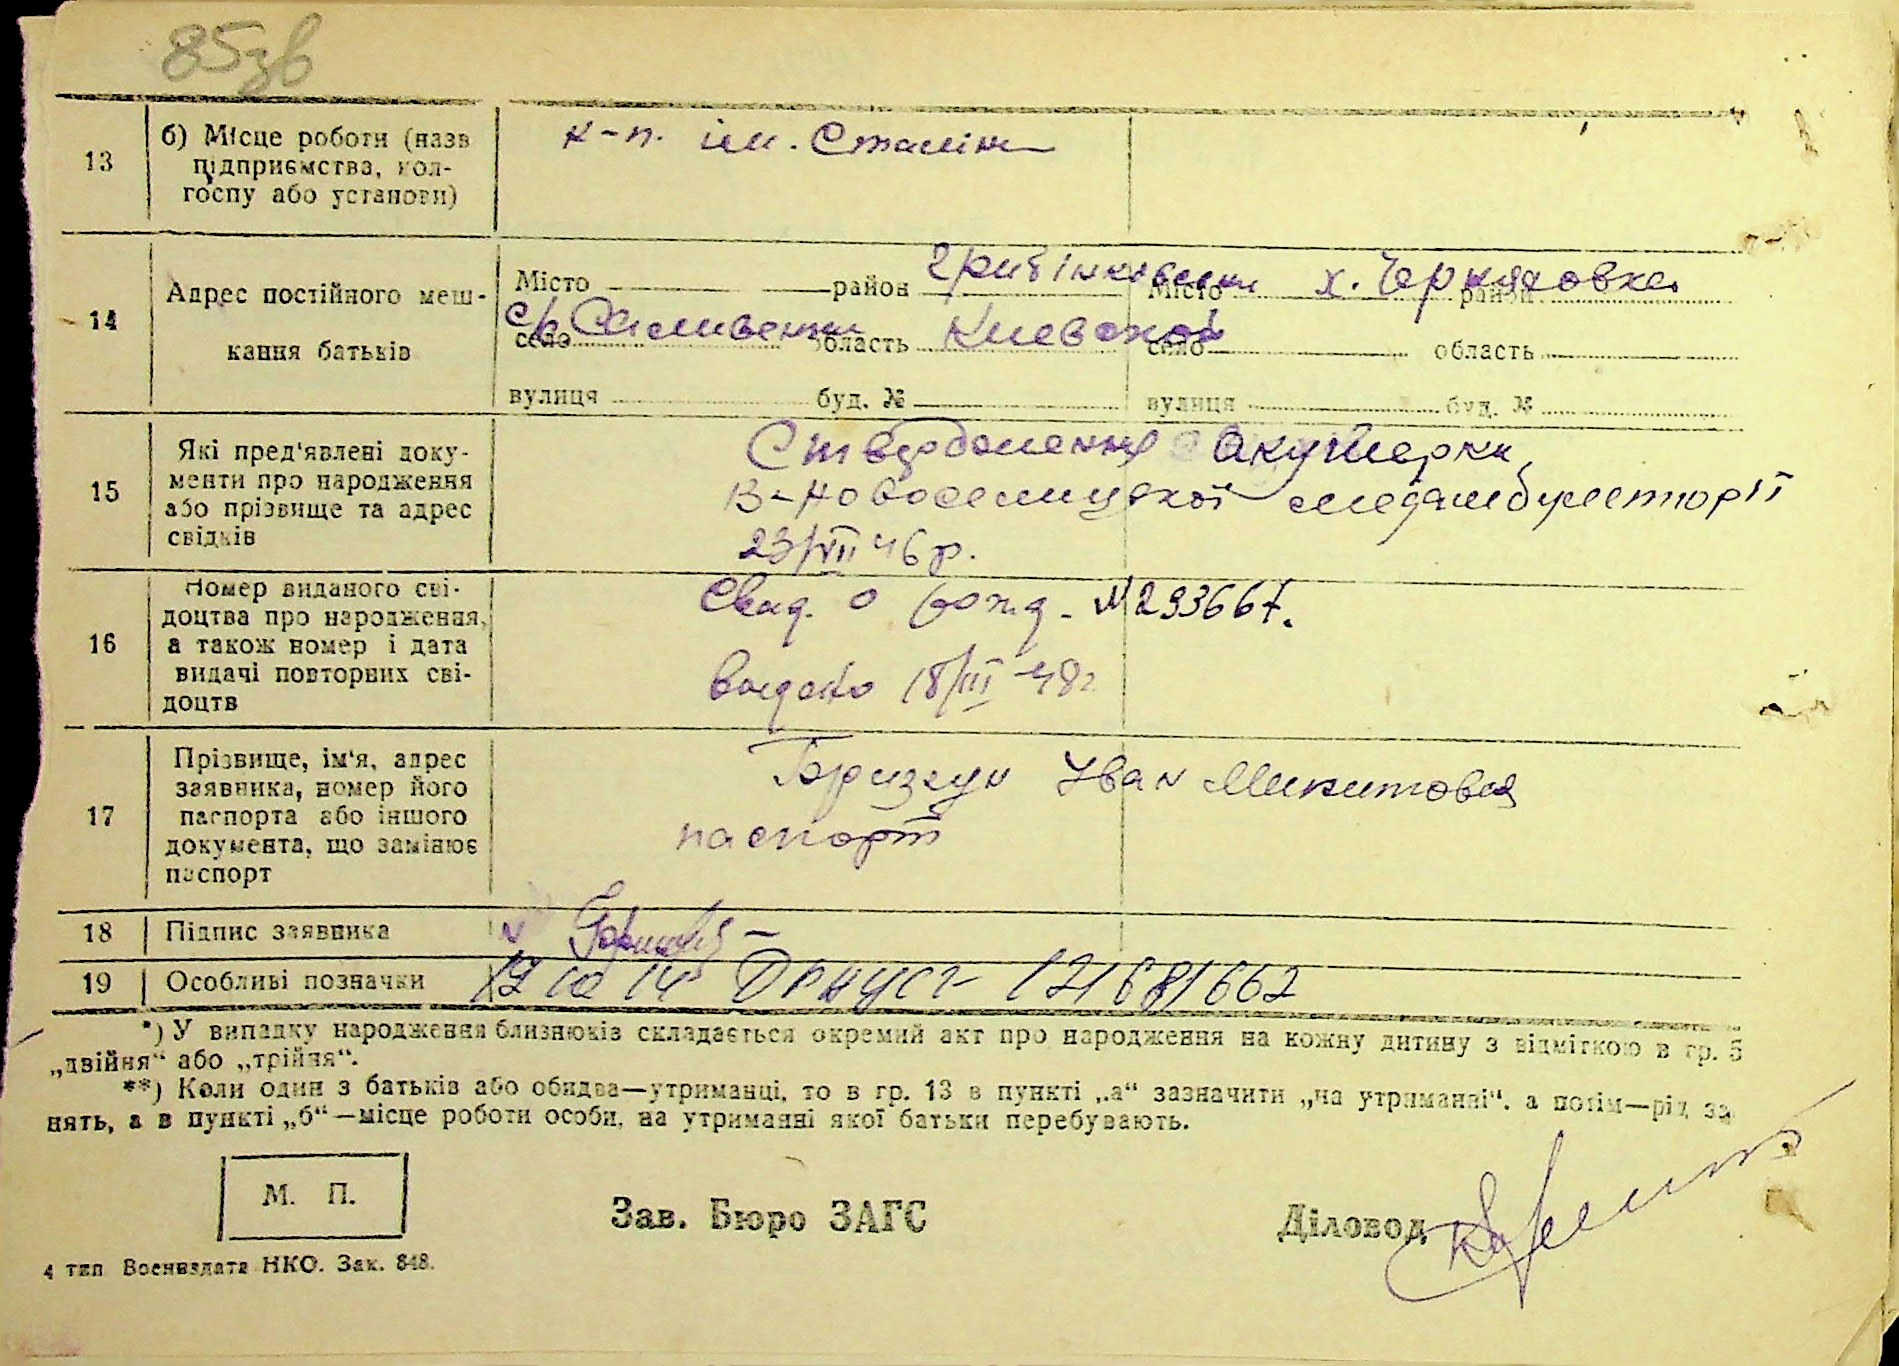 85зв
13
б) Місце роботи (назв
підприємства, кол-
госпу або установи)
к-п. ім. Сталіна
14
Адрес постійного меш-
кання батьків
Місто район Гребінківський Місто х. Черняховка район
с/р Саливенки село область Киевской село область
вулиця буд. № вулиця буд. №
15
Які пред'явлені доку-
менти про народження
або прізвище та адрес
свідків
Ствердження Акушерки
В-Новоселицької медамбулєторії
23/VII 46 р.
16
Номер виданого сві-
доцтва про народження,
а також номер і дата
видачі повторних сві-
доцтв
Свид. о рожд. №293667.
выдано 18/III-48г
17
Прізвище, ім'я, адрес
заявника, номер його
паспорта або іншого
документа, що замінює
паспорт
Іван Микитович
паспорт
18
Підпис заявника
19
Особливі позначки
*) У випадку народження близнюків складається окремий акт про народження на кожну дитину з відміткою в гр. 5
„двійня“ або „трійня“.
**) Коли один з батьків або обидва—утриманці, то в гр. 13 в пункті „а“ зазначити „на утриманні“, а потім—рід за
нять, а в пункті „б“—місце роботи особи, на утриманні якої батьки перебувають.
М. П.
Зав. Бюро ЗАГС
Діловод
4 тип Воениздата НКО. Зак. 848.